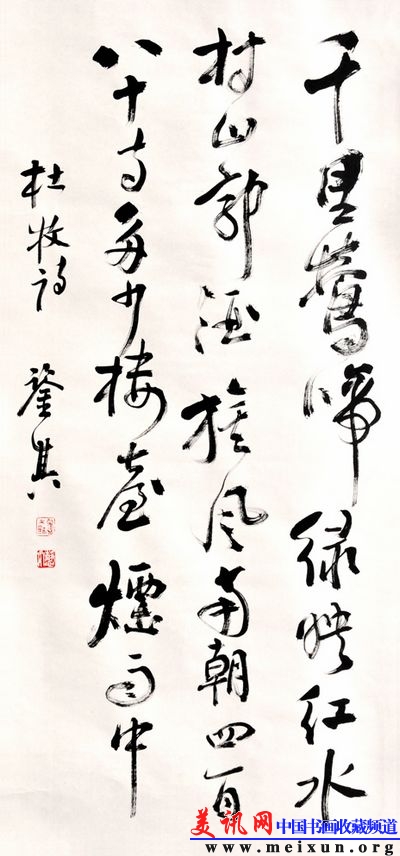 千里鶯啼緑映红水
村山郭酒旗风南朝四百
八十寺多少楼臺煙雨中
杜牧诗
其
美讯网 中国书画收藏频道
www.meixun.org